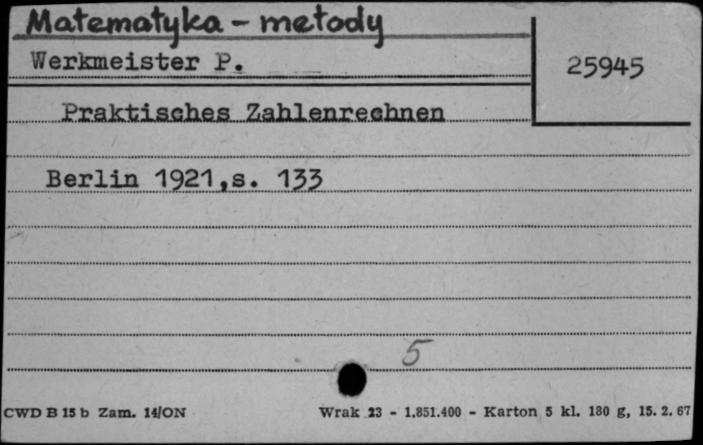 Matematyka - metody
Werkmeister P.
25945
Praktisches Zahlenrechnen
Berlin 1921,s. 133
5
CWD B 15 b Zam. 14/ON
Wrak 23 - 1.851.400 - Karton 5 kl. 180 g, 15. 2. 67